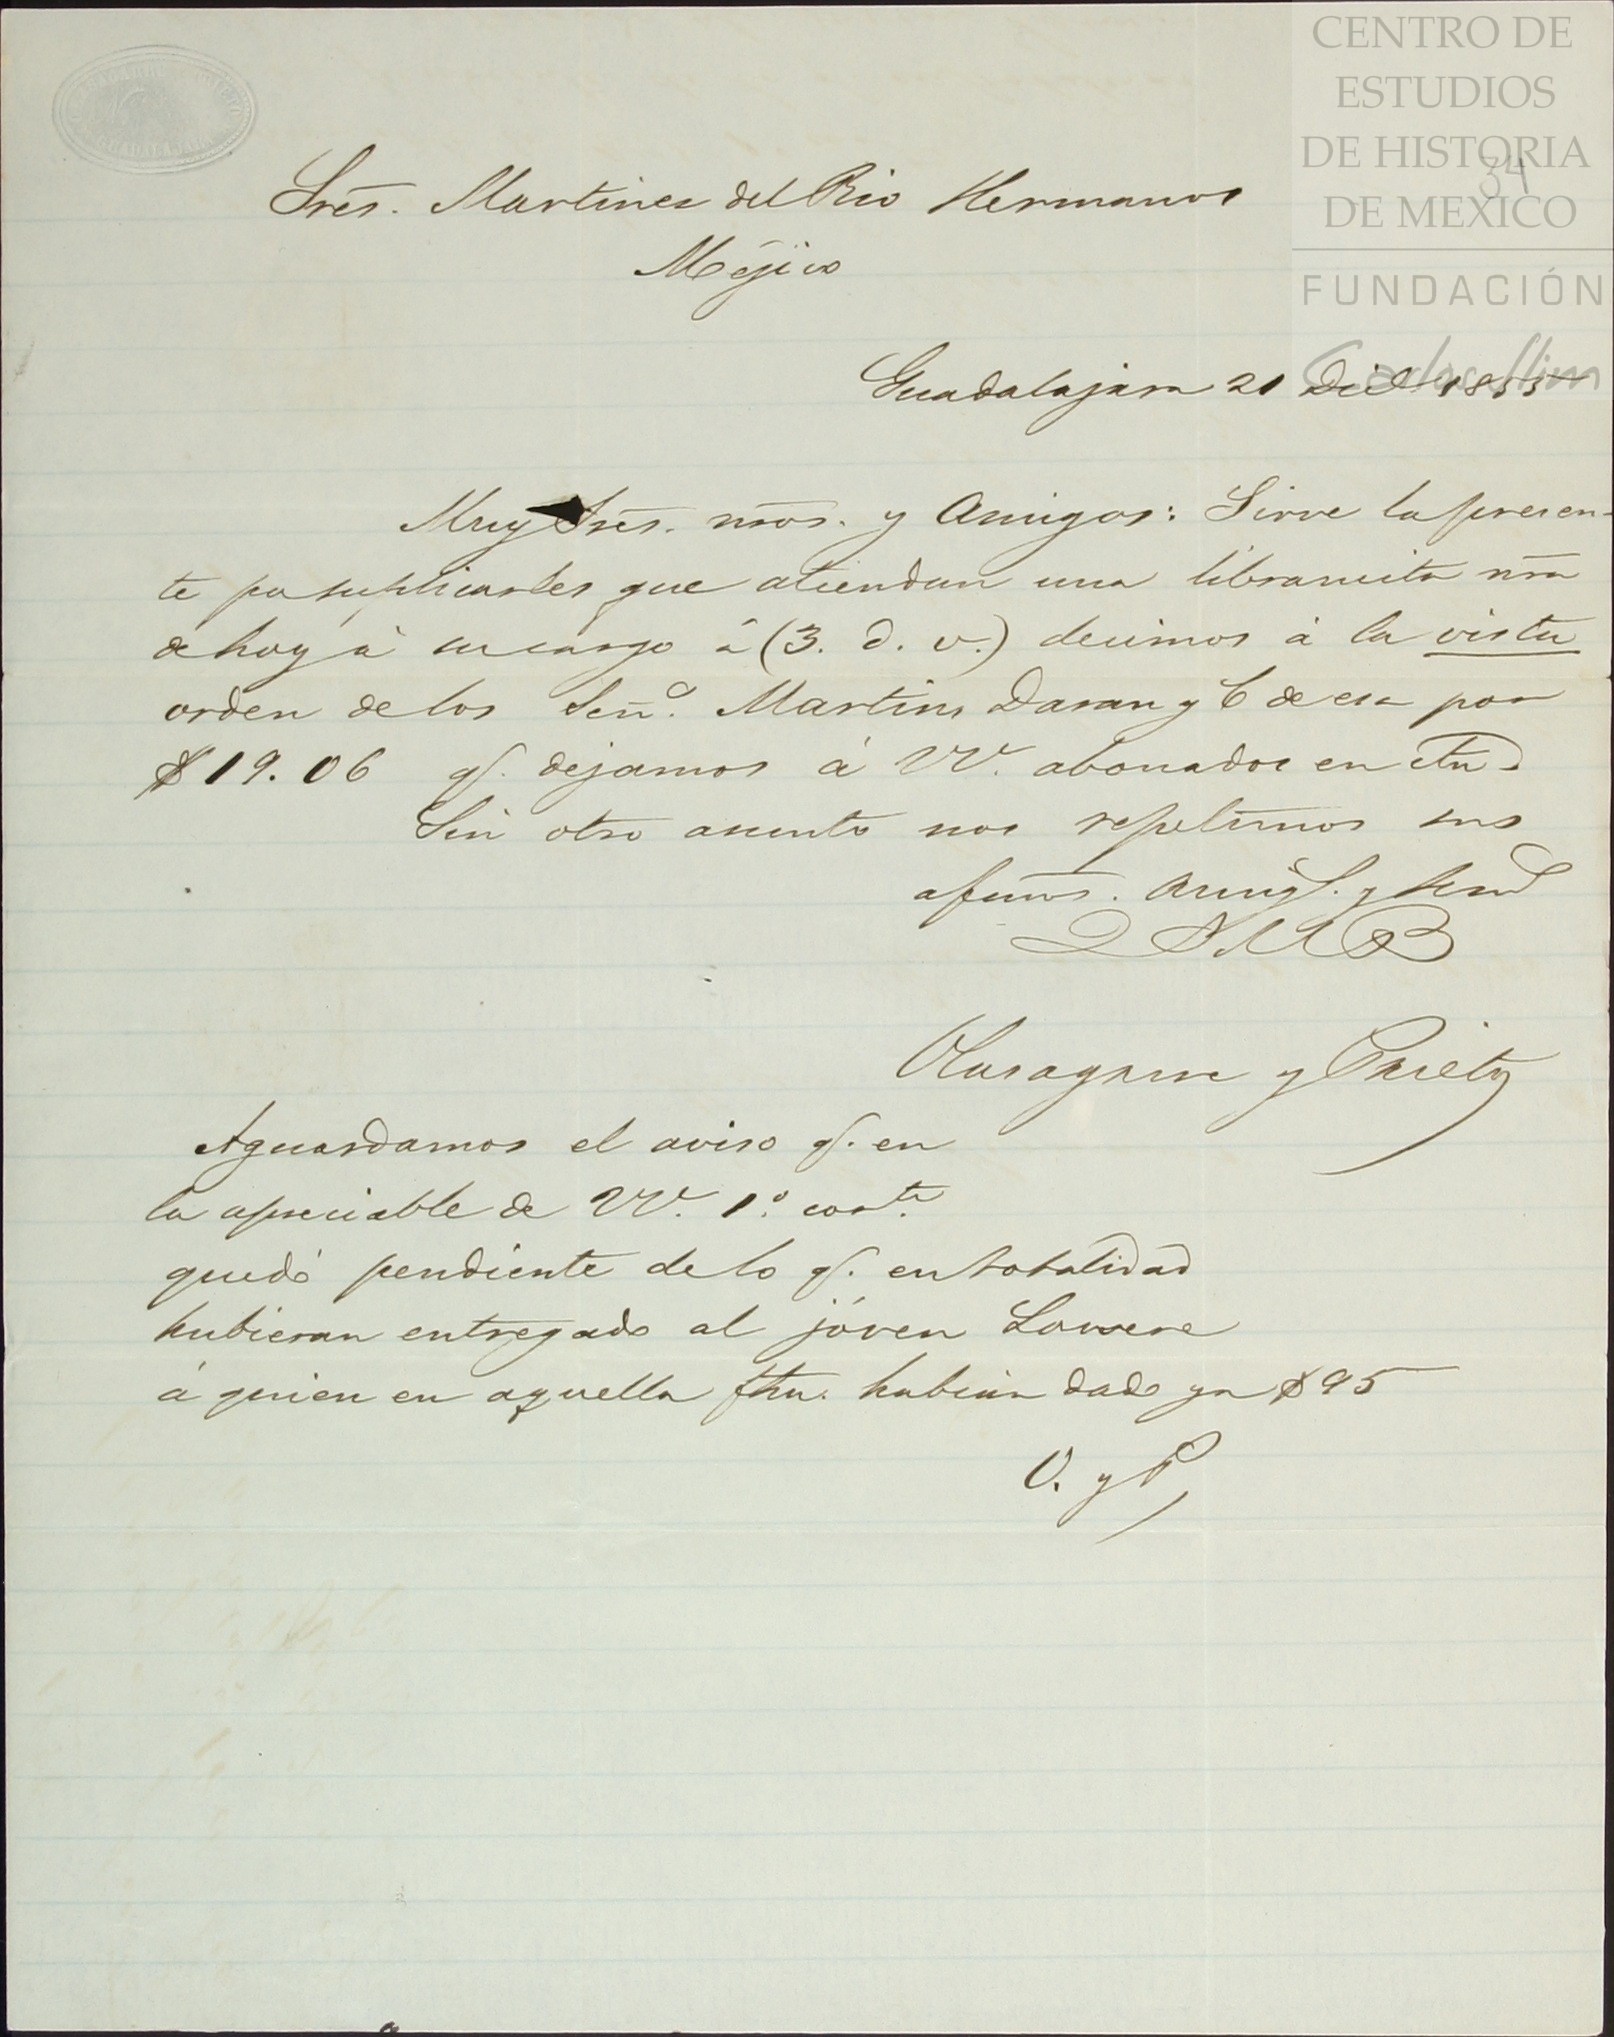 CENTRO DE
ESTUDIOS
DE HISTORIA
DE MEXICO
FUNDACIÓN
Carlos Slim
34
GUADALAJARA
Sres. Martinez del Rio Hermanos
Méjico
Guadalajara 21 Dice 1855
Muy Sres. nros. y Amigos: Sirve la presen-
te pa suplicarles que atiendan una libransita nra
de hoy á su cargo á (3. d. v.) decimos á la vista
orden de los Señs. Martin Daran y C de esa por
$19.06 q. dejamos á VV. abonados en cta
Sin otro asunto nos repetimos sus
afmos. amigs. y servs
Q S M B
Olasagarre y Prieto
Aguardamos el aviso q. en
la apreciable de VV. 1.º corte.
quedó pendiente de lo q. en totalidad
hubieran entregado al jóven Lowere
á quien en aquella fha. habian dado ya $95
O. y P.